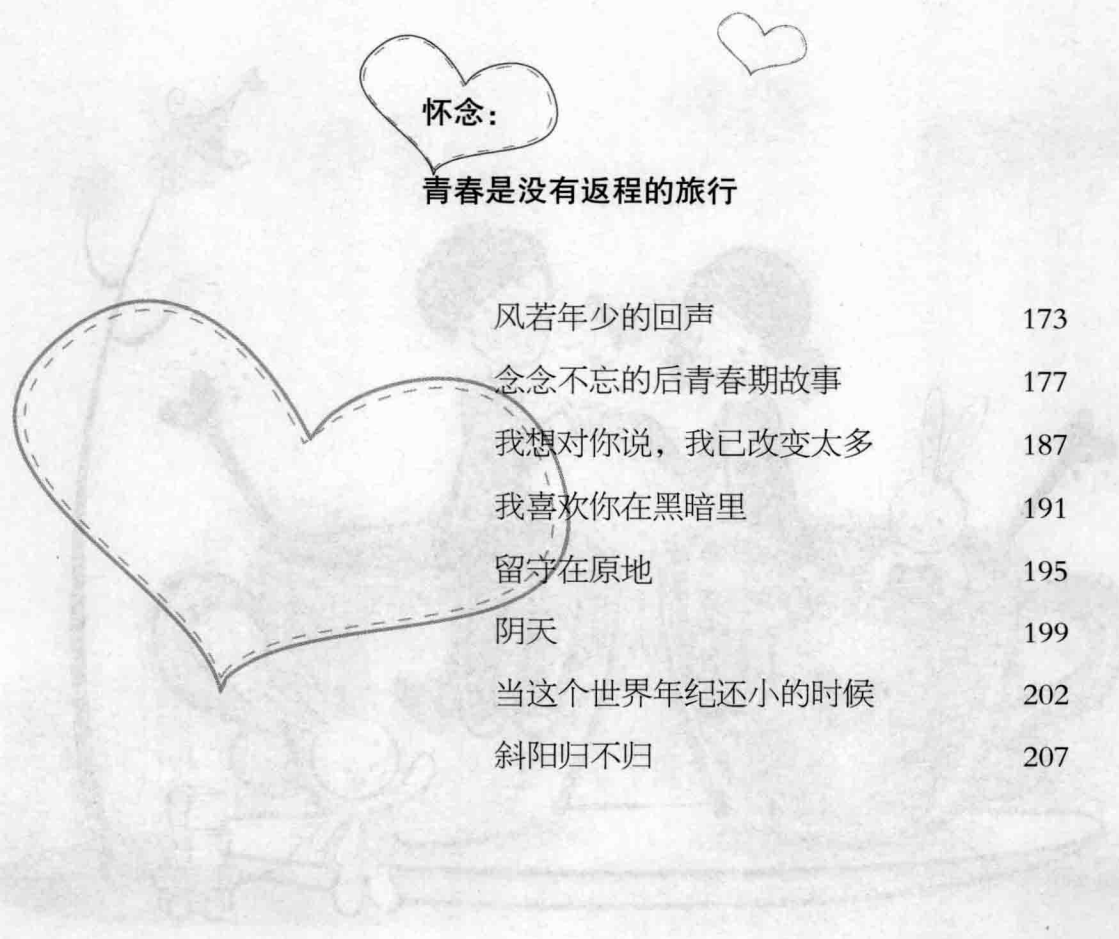 怀念：
青春是没有返程的旅行
风若年少的回声 173
念念不忘的后青春期故事 177
我想对你说，我已改变太多 187
我喜欢你在黑暗里 191
留守在原地 195
阴天 199
当这个世界年纪还小的时候 202
斜阳归不归 207